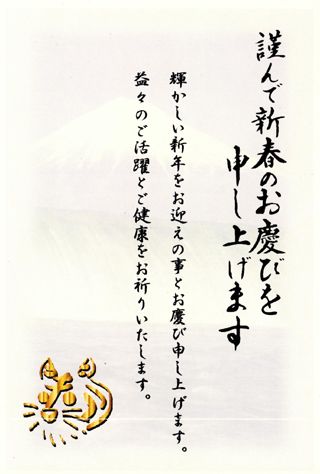 謹んで新春のお慶びを
申し上げます
輝かしい新年をお迎えの事とお慶び申し上げます。
益々のご活躍とご健康をお祈りいたします。